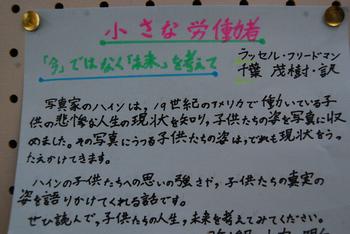 小さな労働者
「今」ではなく「未来」を考えて
ラッセル・フリードマン
千葉 茂樹・訳
写真家のハインは、19世紀のアメリカで働いている子
供の悲惨な人生の現状を知り、子供たちの姿を写真に収
めました。その写真にうつる子供たちの姿は、どれも現状をうっ
たえかけてきます。
ハインの子供たちへの思いの強さや、子供たちの真実の
姿を語りかけてくれる話です。
ぜひ読んで、子供たちの人生、未来を考えてみてください。